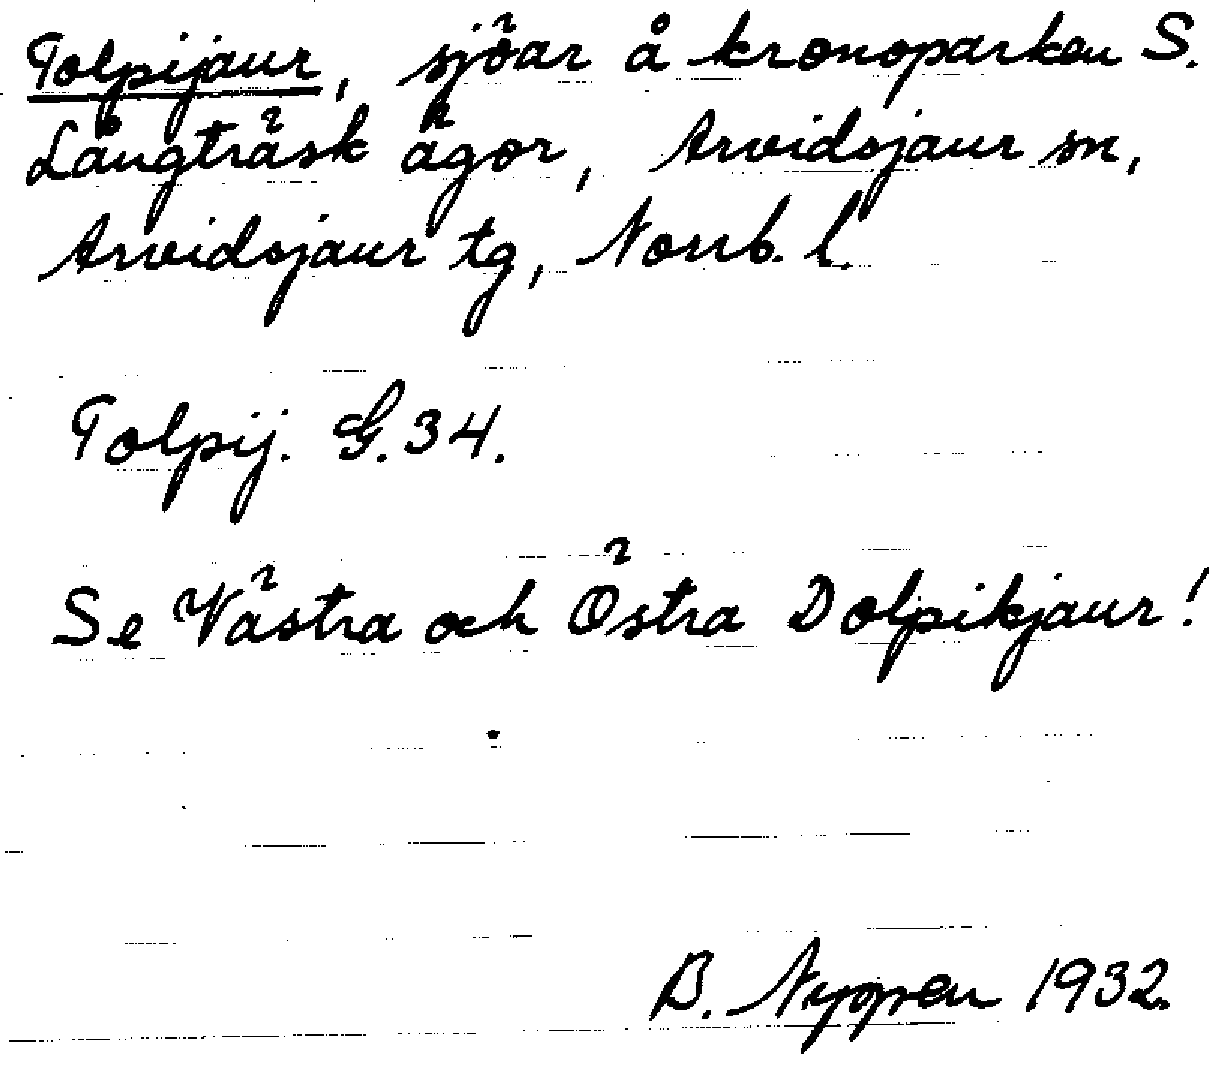 Tolpijaur, sjöar å kronoparken S.
Långträsk ägor, Arvidsjaur sn,
Arvidsjaur tg, Norrb. l.
Tolpij. G.34.
Se Västra och Östra Dolpikjaur!
B. Nygren 1932.